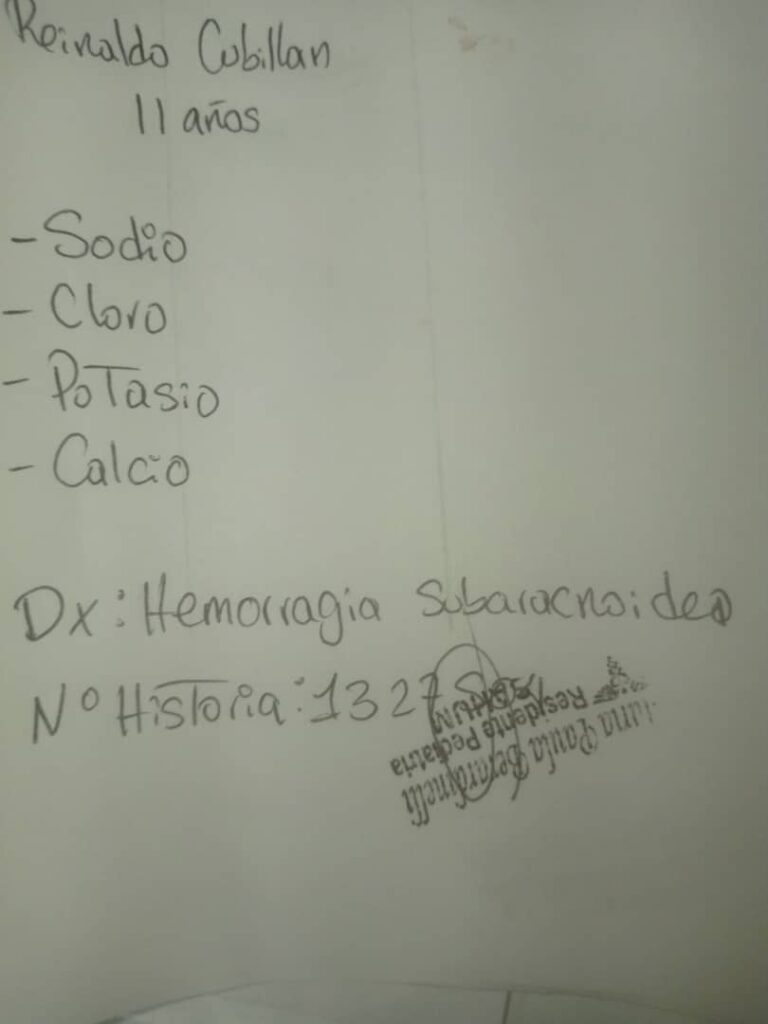 Reinaldo Cubillan
11 años
- Sodio
- Cloro
- Potasio
- Calcio
Dx: Hemorragia Subaracnoidea
Nº Historia: 1327
Paula Berardinelli
Residente Pediatria